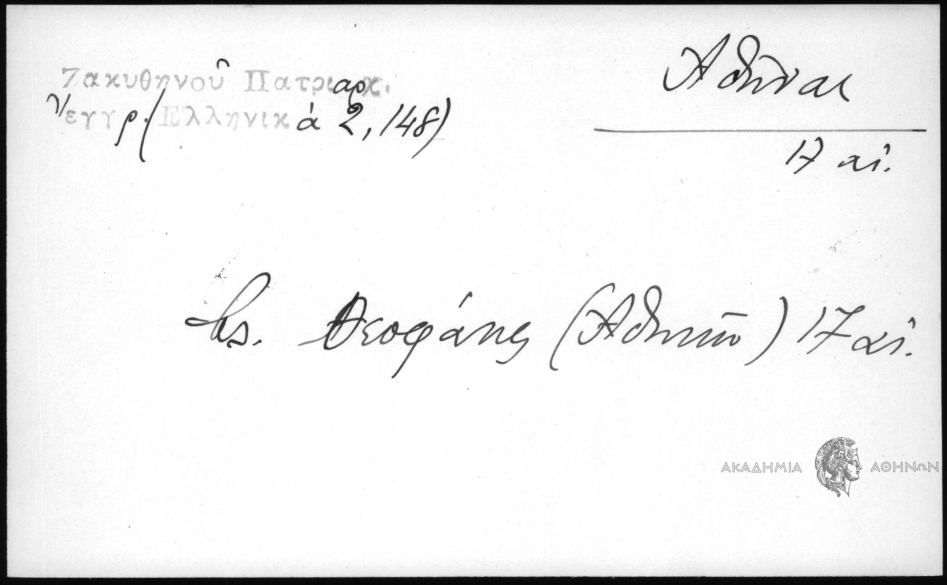 Ζακυθηνοῦ Πατριαρχ.
ἔγγρ. (Ἑλληνικά 2, 148)
Ἀθῆναι
17 αἰ.
Βς. Θεοφάνης (Ἀθηνῶν) 17 αἰ.
ΑΚΑΔΗΜΙΑ ΑΘΗΝΩΝ